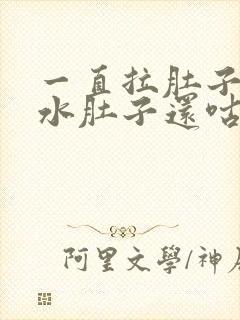 一直拉肚子
水肚子還咕
阿里文學/神